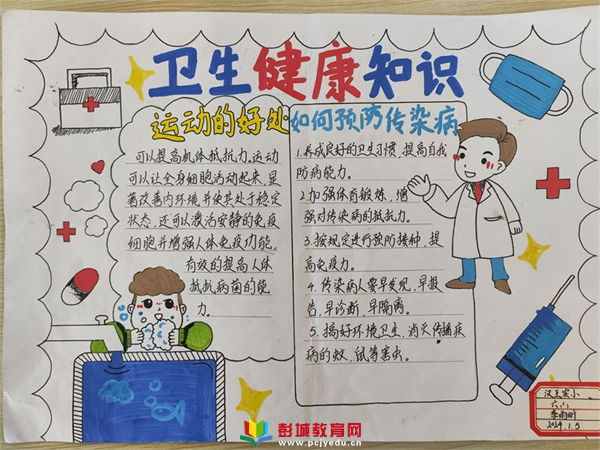 卫生健康知识
运动的好处
可以提高机体抵抗力。运动
可以让全身细胞活动起来,显
著改善内环境并使其处于稳定
状态,还可以激活安静的免疫
细胞并增强人体免疫功能,
有效的提高人体
抵抗病菌的能
力。
如何预防传染病
1.养成良好的卫生习惯,提高自我
防病能力。
2.加强体育锻炼,增
强对传染病的抵抗力。
3.按规定进行预防接种,提
高免疫力。
4.传染病人要早发现,早报
告,早诊断,早隔离。
5.搞好环境卫生,消灭传播疾
病的蚊,鼠等害虫。
汉王实小
六(1)
李雨昕
2024.1.5
彭城教育网
www.pcjyedu.cn